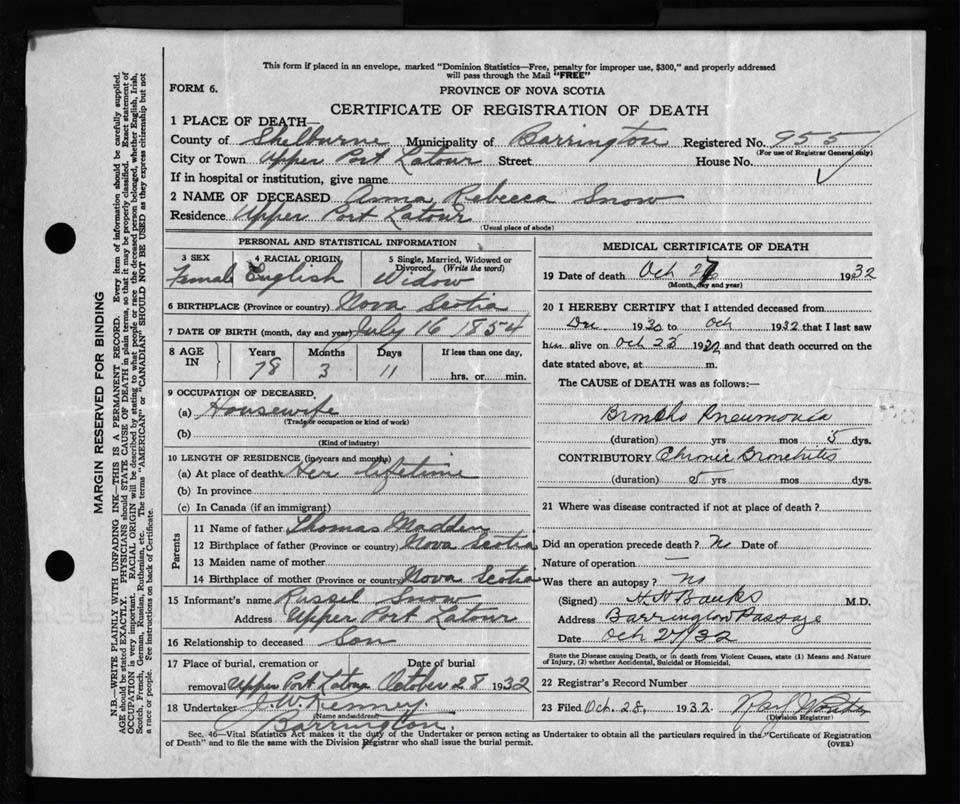 This form if placed in an envelope, marked "Dominion Statistics—Free, penalty for improper use, $300," and properly addressed
will pass through the Mail "FREE"
FORM 6.
PROVINCE OF NOVA SCOTIA
CERTIFICATE OF REGISTRATION OF DEATH
1 PLACE OF DEATH—
County of Shelburne Municipality of Barrington Registered No. 955
(For use of Registrar General only)
City or Town Upper Port Latour Street House No.
If in hospital or institution, give name
2 NAME OF DECEASED Anna Rebecca Snow
Residence Upper Port Latour
(Usual place of abode)
PERSONAL AND STATISTICAL INFORMATION
3 SEX 4 RACIAL ORIGIN 5 Single, Married, Widowed or
Divorced. (Write the word)
Female English Widow
6 BIRTHPLACE (Province or country) Nova Scotia
7 DATE OF BIRTH (month, day and year) July 16 1854
8 AGE IN Years Months Days If less than one day,
78 3 11 hrs. or min.
9 OCCUPATION OF DECEASED,
(a) Housewife
(Trade or occupation or kind of work)
(b)
(Kind of industry)
10 LENGTH OF RESIDENCE (in years and months)
(a) At place of death Her lifetime
(b) In province
(c) In Canada (if an immigrant)
Parents
11 Name of father Thomas Madden
12 Birthplace of father (Province or country) Nova Scotia
13 Maiden name of mother
14 Birthplace of mother (Province or country) Nova Scotia
15 Informant's name Russel Snow
Address Upper Port Latour
16 Relationship to deceased Son
17 Place of burial, cremation or Date of burial
removal Upper Port Latour October 28 1932
18 Undertaker J. W. Kenney
(Name and address)
Barrington.
MEDICAL CERTIFICATE OF DEATH
19 Date of death Oct 27 1932
(Month, day and year)
20 I HEREBY CERTIFY that I attended deceased from
Dec 1930 to Oct 1932 that I last saw
h alive on Oct 25 1932 and that death occurred on the
date stated above, at m.
The CAUSE of DEATH was as follows:
Broncho Pneumonia
(duration) yrs mos 5 dys.
CONTRIBUTORY Chronic Bronchitis
(duration) 5 yrs mos dys.
21 Where was disease contracted if not at place of death?
Did an operation precede death? No Date of
Nature of operation —
Was there an autopsy? No
(Signed) H H Banks M.D.
Address Barrington Passage
Date Oct 27/32
State the Disease causing Death, or in death from Violent Causes, state (1) Means and Nature
of Injury, (2) whether Accidental, Suicidal or Homicidal.
22 Registrar's Record Number
23 Filed Oct. 28, 1932.
(Division Registrar)
Sec. 46—Vital Statistics Act makes it the duty of the Undertaker or person acting as Undertaker to obtain all the particulars required in the "Certificate of Registration
of Death" and to file the same with the Division Registrar who shall issue the burial permit.
(OVER)
MARGIN RESERVED FOR BINDING
N.B.—WRITE PLAINLY WITH UNFADING INK—THIS IS A PERMANENT RECORD. Every item of information should be carefully supplied.
AGE should be stated EXACTLY. PHYSICIANS should STATE CAUSE OF DEATH in plain terms, so that it may be properly classified. Exact statement of
OCCUPATION is very important. RACIAL ORIGIN will be described by stating to what people or race the deceased person belonged, whether English, Irish,
Scotch, French, German, Russian, Ruthenian, etc. The terms "AMERICAN" or "CANADIAN" SHOULD NOT BE USED as they express citizenship but not
a race or people. See instructions on back of Certificate.